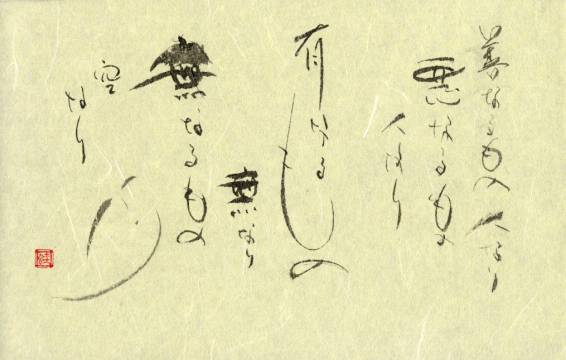 善なるもの人なり
悪なるもの
人なり
有なるもの
無なり
無なるもの
空なり